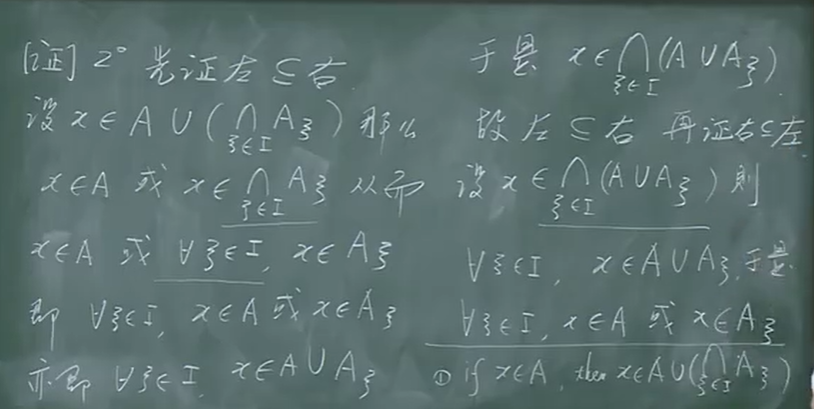 [证] 2° 先证左⊆右
设 x∈A∪(⋂_{ξ∈I} A_ξ) 那么
x∈A 或 x∈⋂_{ξ∈I} A_ξ 从而
x∈A 或 ∀ξ∈I, x∈A_ξ
即 ∀ξ∈I, x∈A 或 x∈A_ξ
亦即 ∀ξ∈I, x∈A∪A_ξ
于是 x∈⋂_{ξ∈I}(A∪A_ξ)
故左⊆右 再证右⊆左
设 x∈⋂_{ξ∈I}(A∪A_ξ) 则
∀ξ∈I, x∈A∪A_ξ, 于是
∀ξ∈I, x∈A 或 x∈A_ξ
① if x∈A, then x∈A∪(⋂_{ξ∈I} A_ξ)